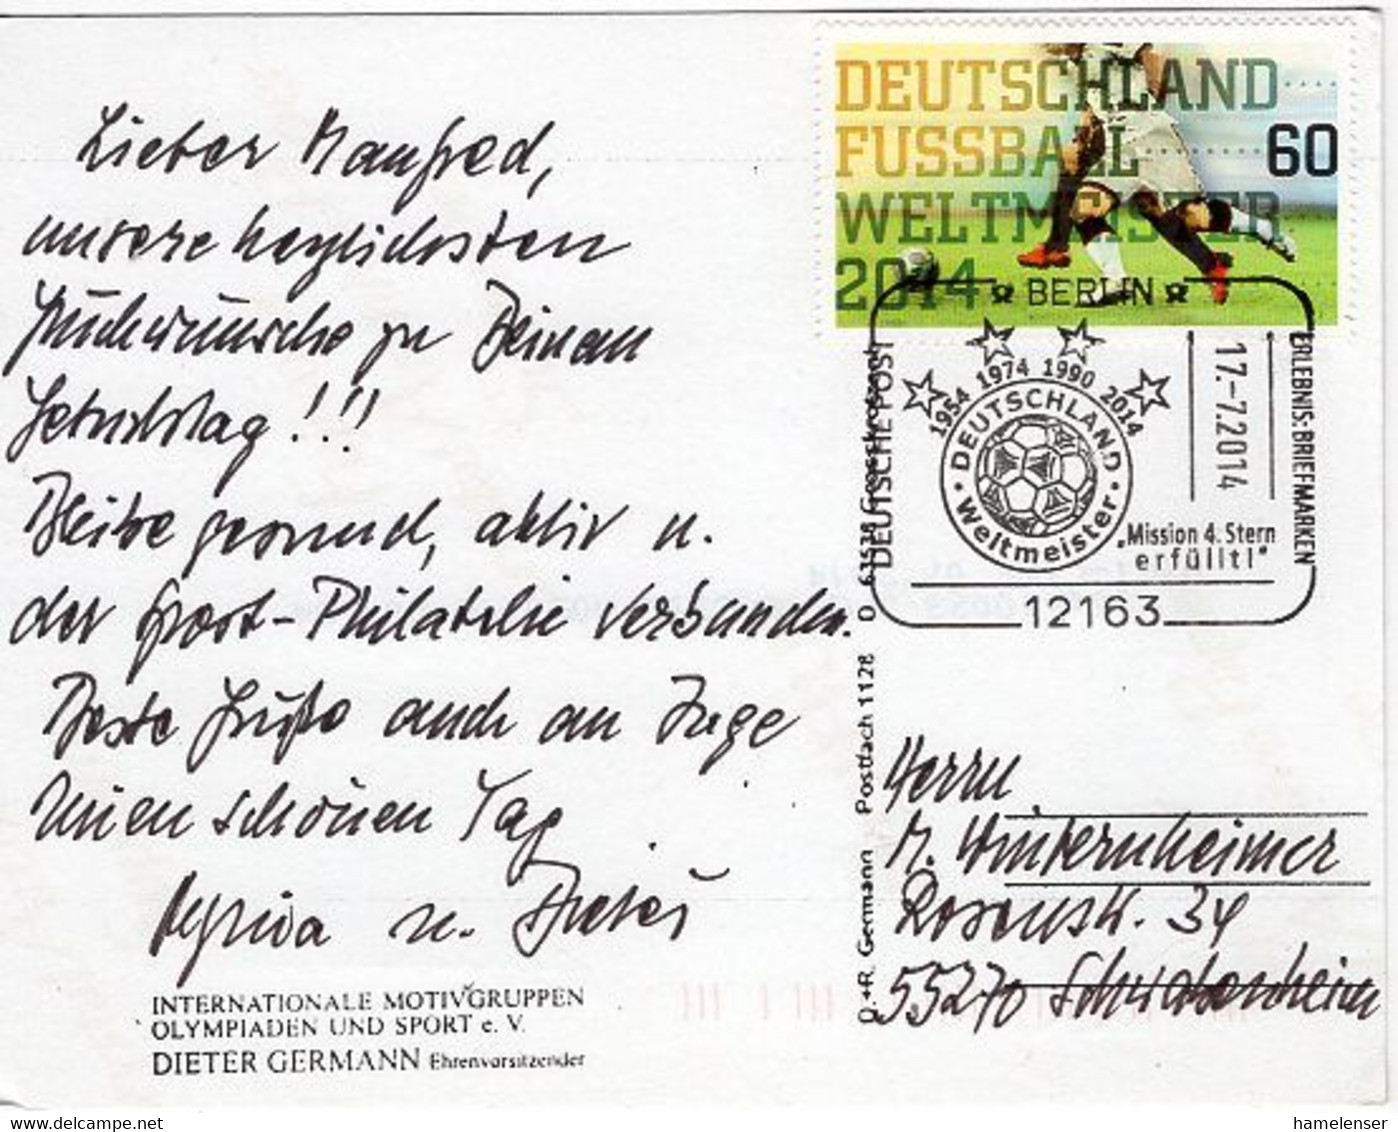 Lieber Manfred,
unsere herzlichsten
Glückwünsche zu Deinem
Geburtstag!!!
Bleibe gesund, aktiv u.
der Sport-Philatelie verbunden.
Beste Grüße auch an Inge
einen schönen Tag
u. Dieter
INTERNATIONALE MOTIVGRUPPEN
OLYMPIADEN UND SPORT e. V.
DIETER GERMANN Ehrenvorsitzender
D.+R. Germann Postfach 1128 D 63538 Grosskrotzenburg
DEUTSCHLAND
FUSSBALL 60
WELTMEISTER
2014
BERLIN
DEUTSCHE POST
ERLEBNIS: BRIEFMARKEN
17.-7.2014
1954 1974 1990 2014
DEUTSCHLAND
Weltmeister
„Mission 4. Stern
erfüllt!"
12163
Herrn
M. Winternheimer
Rosenstr. 34
55270 Schwabenheim
hamelenser
www.delcampe.net